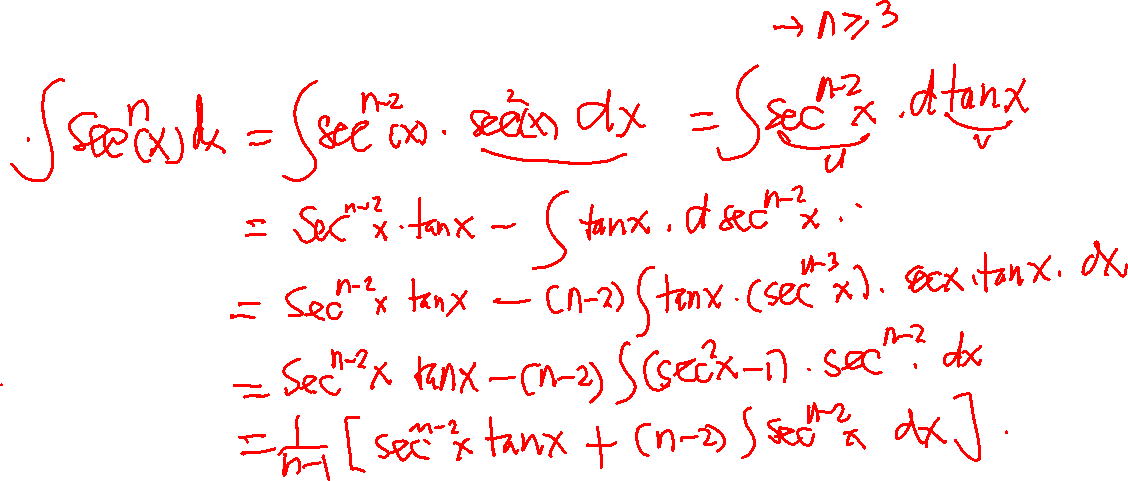 → n ≥ 3
∫ secⁿ(x) dx = ∫ secⁿ⁻²(x) · sec²(x) dx = ∫ secⁿ⁻²x · d tanx
u v
= secⁿ⁻²x · tanx − ∫ tanx · d secⁿ⁻²x ..
= secⁿ⁻²x tanx − (n−2) ∫ tanx · (secⁿ⁻³x) · secx · tanx · dx
= secⁿ⁻²x tanx − (n−2) ∫ (sec²x−1) · secⁿ⁻² · dx
= 1/(n−1) [ secⁿ⁻²x tanx + (n−2) ∫ secⁿ⁻²x dx ] .